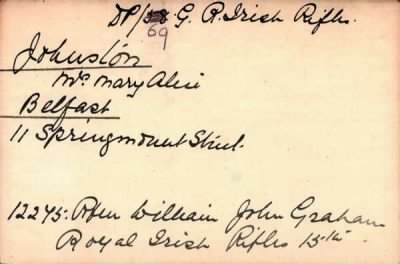 DP/58 G. R. Irish Rifles.
69
Johnston
Mrs Mary Alice
Belfast
11 Springmount Street.
12275. Rflen William John Graham
Royal Irish Rifles 15th.